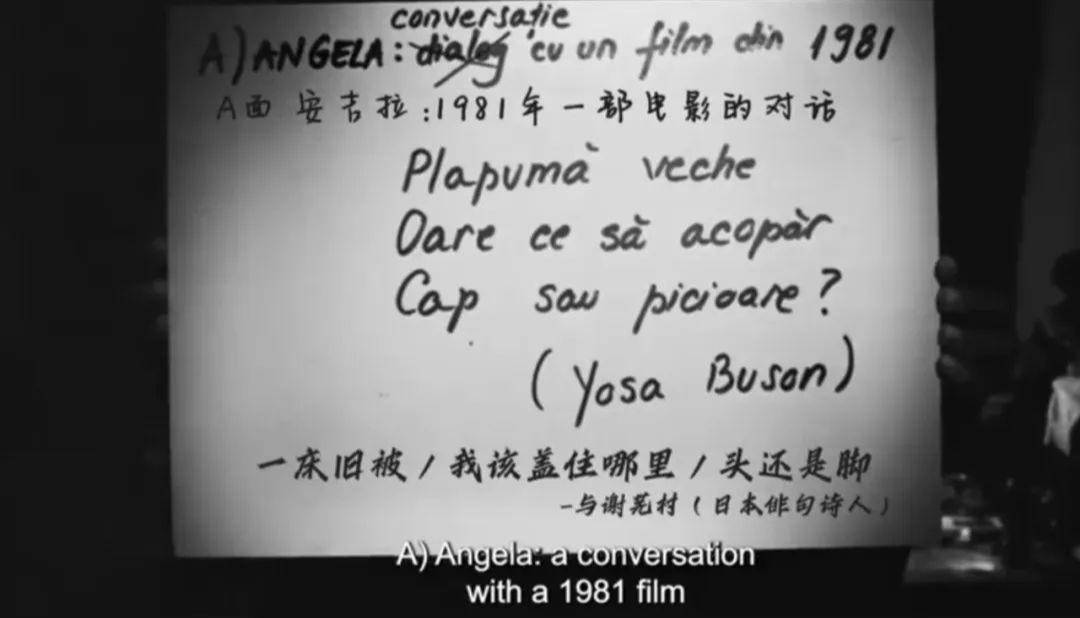 conversație
A) ANGELA: dialog cu un film din 1981
A面 安吉拉:1981年一部电影的对话
Plapumă veche
Oare ce să acopăr
Cap sau picioare?
(Yosa Buson)
一床旧被/我该盖住哪里/头还是脚
-与谢芜村(日本俳句诗人)
A) Angela: a conversation
with a 1981 film